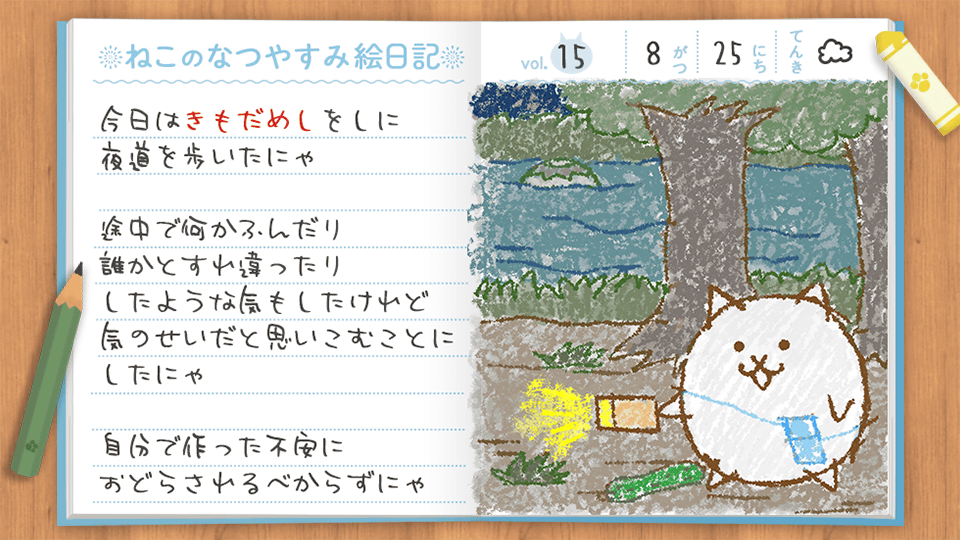 ねこのなつやすみ絵日記
vol. 15
8 がつ 25 にち てんき
今日はきもだめしをしに
夜道を歩いたにゃ
途中で何かふんだり
誰かとすれ違ったり
したような気もしたけれど
気のせいだと思いこむことに
したにゃ
自分で作った不安に
おどらされるべからずにゃ